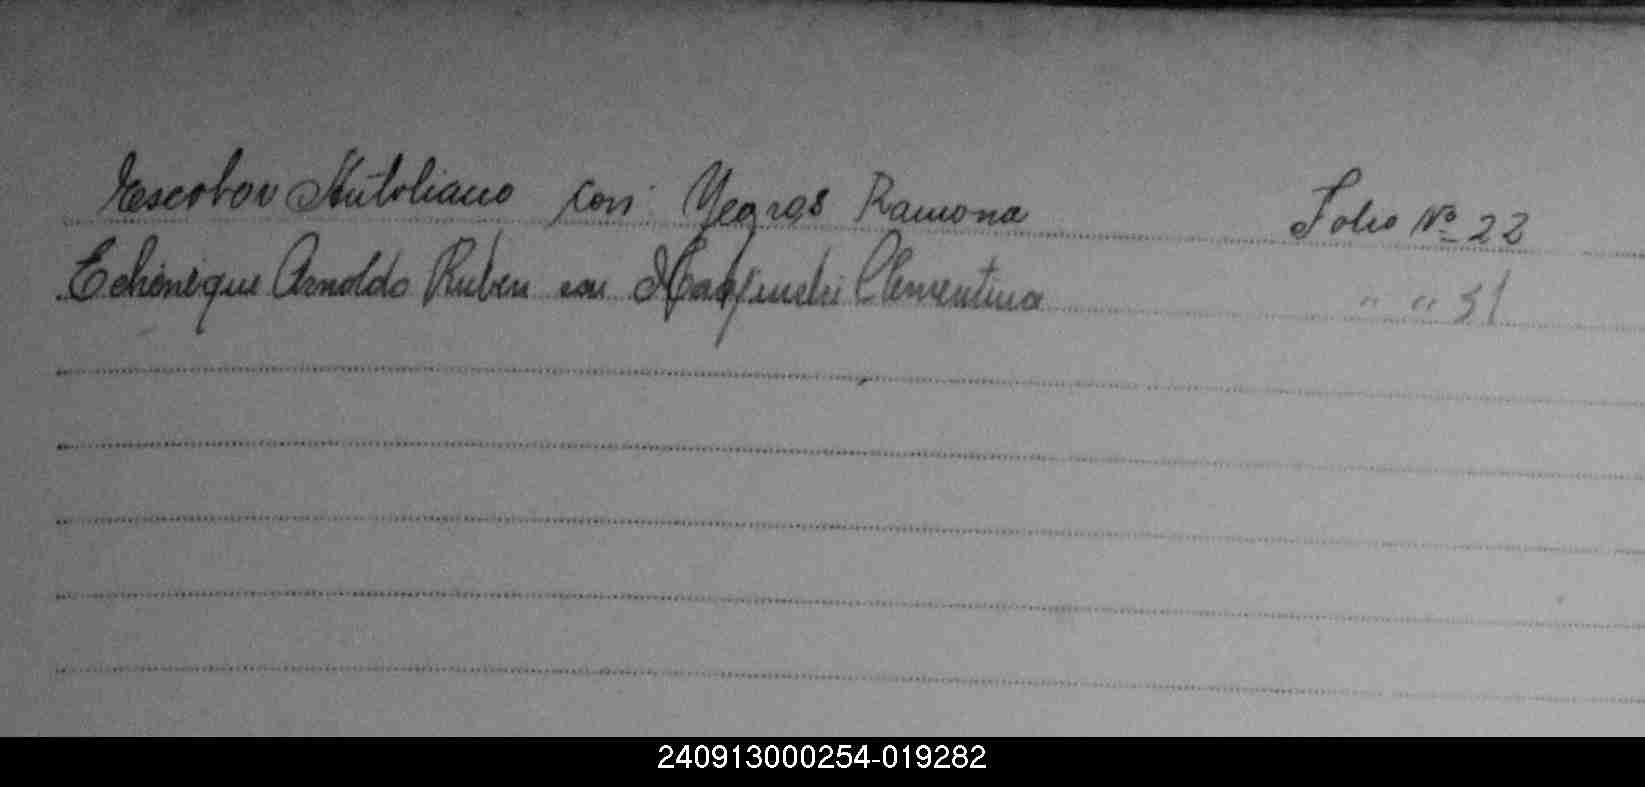 Escobar con Yegros Ramona Folio Nº 22
Echenique Arnoldo Ruben con Clementina " " 31
240913000254-019282